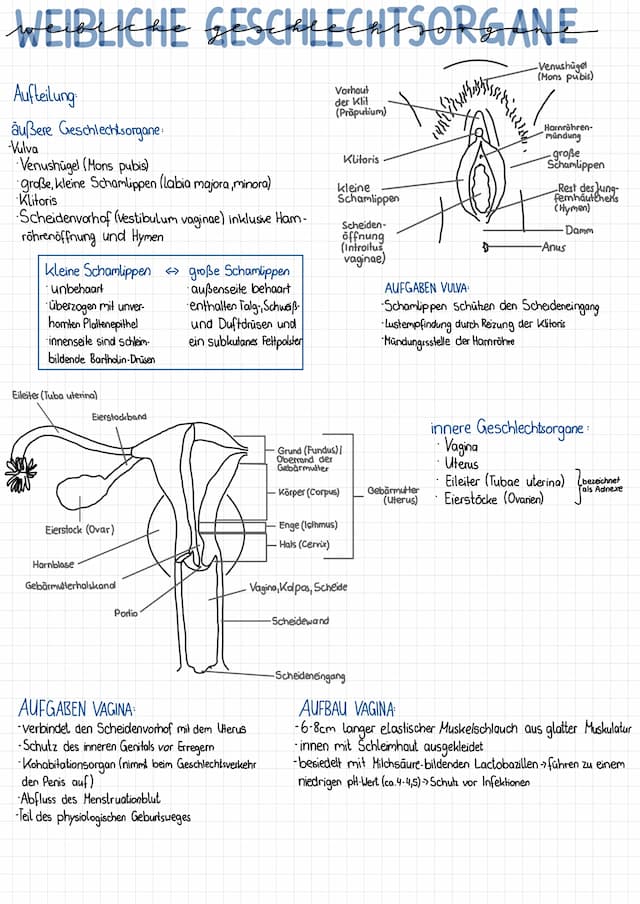 WEIBLICHE GESCHLECHTSORGANE
weibliche geschlechtsorgane
Aufteilung:
äußere Geschlechtsorgane:
·Vulva
· Venushügel (Mons pubis)
· große, kleine Schamlippen (Labia majora, minora)
· Klitoris
· Scheidenvorhof (Vestibulum vaginae) inklusive Harn-
röhrenöffnung und Hymen
Venushügel
(Mons pubis)
Vorhaut
der Klit
(Präputium)
Harnröhren-
mündung
Klitoris
große
Schamlippen
kleine
Schamlippen
Rest des Jung-
fernhäutchens
(Hymen)
Scheiden-
öffnung
(Introitus
vaginae)
Damm
Anus
kleine Schamlippen ⇔ große Schamlippen
· unbehaart
· überzogen mit unver-
hornten Plattenepithel
· innenseite sind schleim-
bildende Bartholin-Drüsen
· außenseite behaart
· enthalten Talg-, Schweiß-
und Duftdrüsen und
ein subkutanes Fettpolster
AUFGABEN VULVA:
· Schamlippen schützen den Scheideneingang
· Lustempfindung durch Reizung der Klitoris
· Mündungsstelle der Harnröhre
Eileiter (Tuba uterina)
Eierstockband
Grund (Fundus) |
Oberrand der
Gebärmutter
Körper (Corpus)
Gebärmutter
(Uterus)
Enge (Isthmus)
Hals (Cervix)
Eierstock (Ovar)
Harnblase
Gebärmutterhalskanal
Portio
Vagina, Kolpos, Scheide
Scheidewand
Scheideneingang
innere Geschlechtsorgane:
· Vagina
· Uterus
· Eileiter (Tubae uterina)
· Eierstöcke (Ovarien)
bezeichnet
als Adnexe
AUFGABEN VAGINA:
· verbindet den Scheidenvorhof mit dem Uterus
· Schutz des inneren Genitals vor Erregern
· Kohabitationsorgan (nimmt beim Geschlechtsverkehr
den Penis auf)
· Abfluss des Menstruationblut
· Teil des physiologischen Geburtsweges
AUFBAU VAGINA:
· 6-8cm langer elastischer Muskelschlauch aus glatter Muskulatur
· innen mit Schleimhaut ausgekleidet
· besiedelt mit Milchsäure-bildenden Lactobazillen → führen zu einem
niedrigen pH-Wert (ca. 4-4,5) → Schutz vor Infektionen